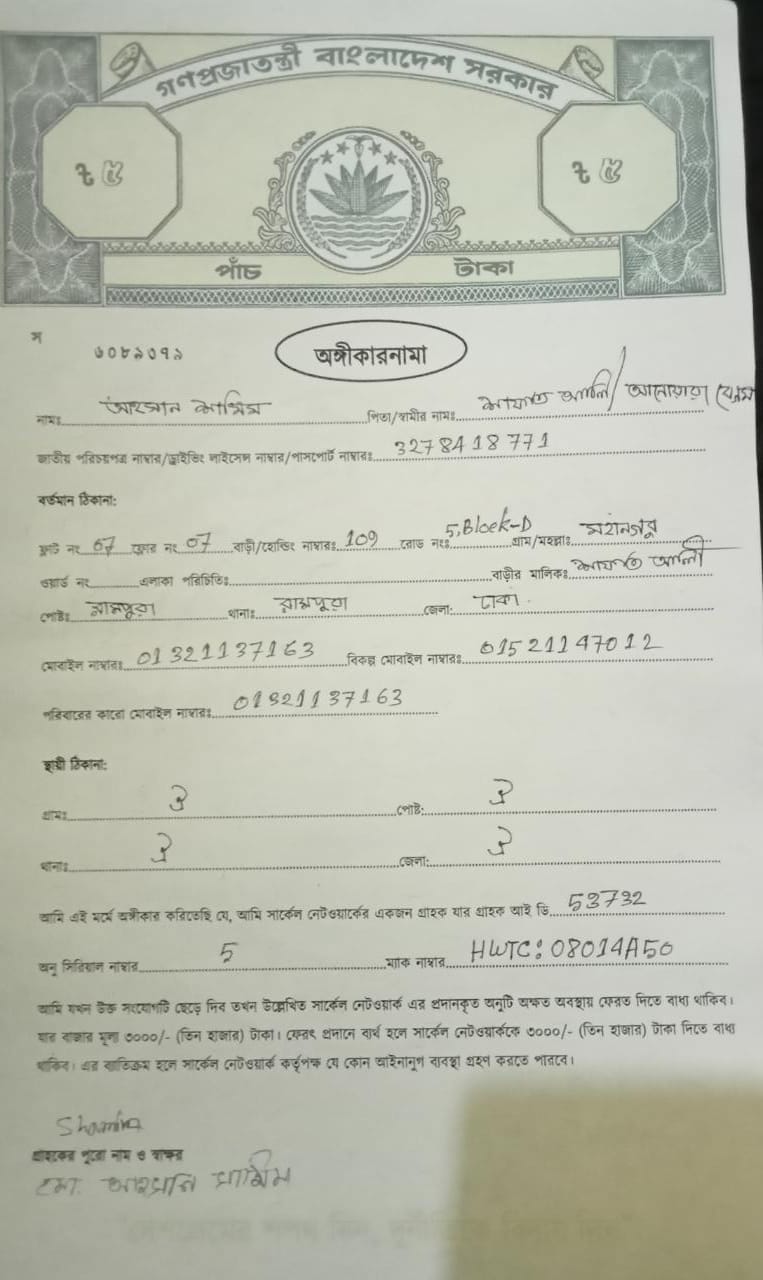 গণপ্রজাতন্ত্রী বাংলাদেশ সরকার
৳ ৫ ৳ ৫
পাঁচ টাকা
স ৬০৮৯০৭৯
অঙ্গীকারনামা
নামঃ আহসান শামিম পিতা/স্বামীর নামঃ আলী/আনোয়ারা বেগম
জাতীয় পরিচয়পত্র নাম্বার/ড্রাইভিং লাইসেন্স নাম্বার/পাসপোর্ট নাম্বারঃ 3278418771
বর্তমান ঠিকানা:
ফ্লাট নং 07 ফ্লোর নং 07 বাড়ী/হোল্ডিং নাম্বারঃ 109 রোড নংঃ 5, Block-D গ্রাম/মহল্লাঃ মহানগর
ওয়ার্ড নং এলাকা পরিচিতিঃ বাড়ীর মালিকঃ আলী
পোষ্টঃ রামপুরা থানাঃ রামপুরা জেলা: ঢাকা
মোবাইল নাম্বারঃ 01321137163 বিকল্প মোবাইল নাম্বারঃ 01521147012
পরিবারের কারো মোবাইল নাম্বারঃ 01321137163
স্থায়ী ঠিকানা:
গ্রামঃ ঐ পোষ্ট: ঐ
থানাঃ ঐ জেলা: ঐ
আমি এই মর্মে অঙ্গীকার করিতেছি যে, আমি সার্কেল নেটওয়ার্কের একজন গ্রাহক যার গ্রাহক আই ডি 53732
অনু সিরিয়াল নাম্বার 5 ম্যাক নাম্বার HWTC: 08014A50
আমি যখন উক্ত সংযোগটি ছেড়ে দিব তখন উল্লেখিত সার্কেল নেটওয়ার্ক এর প্রদানকৃত অনুটি অক্ষত অবস্থায় ফেরত দিতে বাধ্য থাকিব।
যার বাজার মূল্য ৩০০০/- (তিন হাজার) টাকা। ফেরৎ প্রদানে ব্যর্থ হলে সার্কেল নেটওয়ার্ককে ৩০০০/- (তিন হাজার) টাকা দিতে বাধ্য
থাকিব। এর ব্যতিক্রম হলে সার্কেল নেটওয়ার্ক কর্তৃপক্ষ যে কোন আইনানুগ ব্যবস্থা গ্রহণ করতে পারবে।
গ্রাহকের পুরো নাম ও স্বাক্ষর
মো. আহসান শামিম